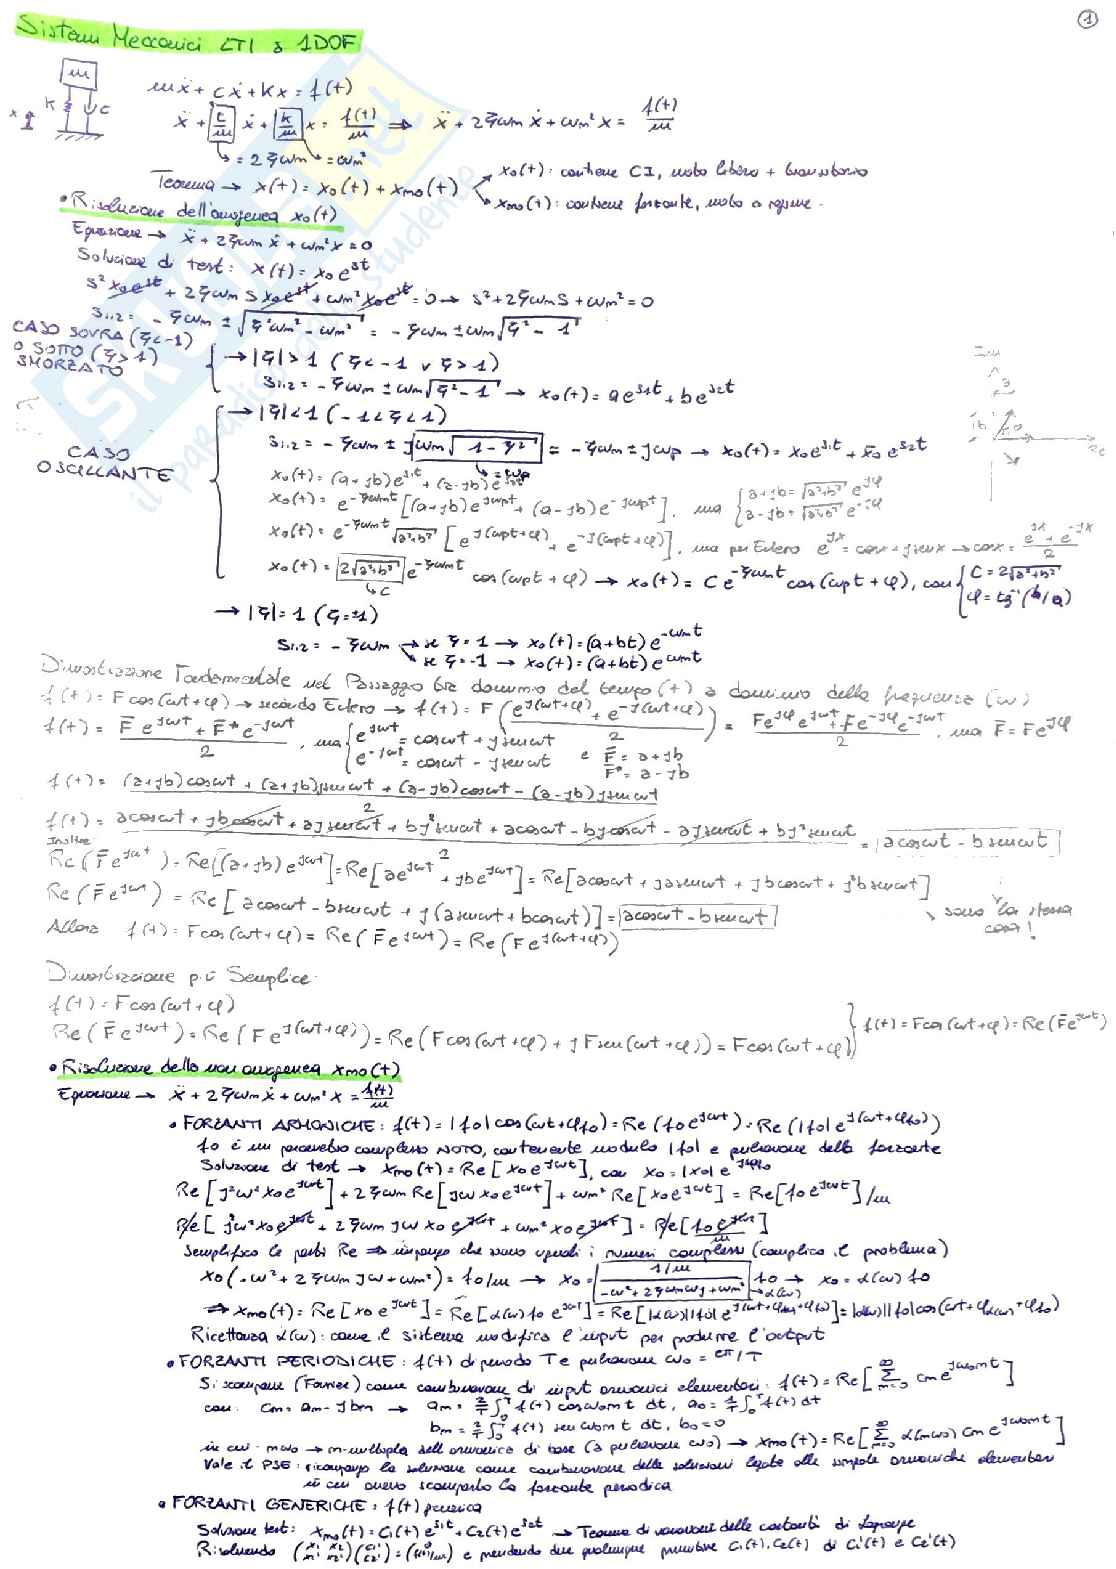 1
Sistemi Meccanici LTI a 1DOF
m
K
C
x
mẍ + cẋ + Kx = f(t)
ẍ + c/m ẋ + k/m x = f(t)/m ⇒ ẍ + 2ξωm ẋ + ωm² x = f(t)/m
= 2ξωm = ωm²
Teorema → x(t) = x₀(t) + xmo(t)
x₀(t): contiene CI, moto libero + transitorio
xmo(t): contiene forzante, moto a regime.
• Risoluzione dell'omogenea x₀(t)
Equazione → ẍ + 2ξωm ẋ + ωm² x = 0
Soluzione di test: x(t) = x₀e^st
s²x₀e^st + 2ξωm s x₀e^st + ωm² x₀e^st = 0 → s² + 2ξωm s + ωm² = 0
s1,2 = -ξωm ± √(ξ²ωm² - ωm²) = -ξωm ± ωm√(ξ² - 1)
CASO SOVRA (ξ<-1)
O SOTTO (ξ>1)
SMORZATO
→ |ξ|>1 (ξ<-1 ∨ ξ>1)
s1,2 = -ξωm ± ωm√(ξ²-1) → x₀(t) = ae^s1t + be^s2t
Im
Re
CASO
OSCILLANTE
→ |ξ|<1 (-1<ξ<1)
s1,2 = -ξωm ± jωm√(1-ξ²) = -ξωm ± jωp → x₀(t) = x₀e^s1t + x̄₀e^s2t
= ωp
x₀(t) = (a+jb)e^s1t + (a-jb)e^s2t
x₀(t) = e^-ξωmt [(a+jb)e^jωpt + (a-jb)e^-jωpt], ma { a+jb = √(a²+b²) e^jφ
a-jb = √(a²+b²) e^-jφ
x₀(t) = e^-ξωmt √(a²+b²) [e^j(ωpt+φ) + e^-j(ωpt+φ)], ma per Eulero e^jx = cosx + jsenx → cosx = (e^jx + e^-jx)/2
x₀(t) = 2√(a²+b²) e^-ξωmt cos(ωpt+φ) → x₀(t) = Ce^-ξωmt cos(ωpt+φ), con { C = 2√(a²+b²)
C
φ = tg⁻¹(b/a)
→ |ξ|=1 (ξ=±1)
s1,2 = -ξωm → se ξ=1 → x₀(t) = (a+bt)e^-ωmt
se ξ=-1 → x₀(t) = (a+bt)e^ωmt
Dimostrazione Fondamentale nel Passaggio tra dominio del tempo (t) a dominio della frequenza (ω)
f(t) = Fcos(ωt+φ) → secondo Eulero → f(t) = F((e^j(ωt+φ) + e^-j(ωt+φ))/2) = (Fe^jφ e^jωt + Fe^-jφ e^-jωt)/2, ma F̄ = Fe^jφ
f(t) = (F̄e^jωt + F*e^-jωt)/2, ma { e^jωt = cosωt + jsenωt
e^-jωt = cosωt - jsenωt
e F̄ = a+jb
F* = a-jb
f(t) = ((a+jb)cosωt + (a+jb)jsenωt + (a-jb)cosωt - (a-jb)jsenωt)/2
f(t) = (acosωt + jbcosωt + ajsenωt + bj²senωt + acosωt - bjcosωt - ajsenωt + bj²senωt)/2 = acosωt - bsenωt
Inoltre
Re(F̄e^jωt) = Re[(a+jb)e^jωt] = Re[ae^jωt + jbe^jωt] = Re[acosωt + jasenωt + jbcosωt + j²bsenωt]
Re(F̄e^jωt) = Re[acosωt - bsenωt + j(asenωt + bcosωt)] = acosωt - bsenωt
sono la stessa
cosa!
Allora f(t) = Fcos(ωt+φ) = Re(F̄e^jωt) = Re(Fe^j(ωt+φ))
Dimostrazione più Semplice:
f(t) = Fcos(ωt+φ)
Re(F̄e^jωt) = Re(Fe^j(ωt+φ)) = Re(Fcos(ωt+φ) + jFsen(ωt+φ)) = Fcos(ωt+φ)
} f(t) = Fcos(ωt+φ) = Re(F̄e^jωt)
• Risoluzione della non omogenea xmo(t)
Equazione → ẍ + 2ξωm ẋ + ωm² x = f(t)/m
• FORZANTI ARMONICHE: f(t) = |f₀|cos(ωt+φf₀) = Re(f₀e^jωt) = Re(|f₀|e^j(ωt+φf₀))
f₀ è un parametro complesso NOTO, contenente modulo |f₀| e pulsazione della forzante
Soluzione di test → xmo(t) = Re[x₀e^jωt], con x₀ = |x₀|e^jφx₀
Re[j²ω²x₀e^jωt] + 2ξωm Re[jωx₀e^jωt] + ωm² Re[x₀e^jωt] = Re[f₀e^jωt]/m
Re[j²ω²x₀e^jωt + 2ξωm jωx₀e^jωt + ωm²x₀e^jωt] = Re[f₀e^jωt/m]
Semplifico le parti Re ⇒ impongo che siano uguali i numeri complessi (complico il problema)
x₀(-ω² + 2ξωm jω + ωm²) = f₀/m → x₀ = (1/m)/(-ω² + 2ξωmωj + ωm²) f₀ → x₀ = α(ω) f₀
α(ω)
⇒ xmo(t) = Re[x₀e^jωt] = Re[α(ω)f₀e^jωt] = Re[|α(ω)||f₀|e^j(ωt+φα(ω)+φf₀)] = |α(ω)||f₀|cos(ωt+φα(ω)+φf₀)
Ricettanza α(ω): come il sistema modifica l'input per produrre l'output
• FORZANTI PERIODICHE: f(t) di periodo T e pulsazione ω₀ = 2π/T
Si scompone (Fourier) come combinazione di input armonici elementari: f(t) = Re[Σ m=0 ∞ cm e^jω₀mt]
con: cm = am - jbm → am = 2/T ∫₀ᵀ f(t) cosω₀mt dt, a₀ = 1/T ∫₀ᵀ f(t) dt
bm = 2/T ∫₀ᵀ f(t) senω₀mt dt, b₀ = 0
in cui mω₀ → m-multipla dell'armonica di base (a pulsazione ω₀) → xmo(t) = Re[Σ m=0 ∞ α(mω₀) cm e^jω₀mt]
Vale il PSE: ricompongo la soluzione come combinazione delle soluzioni legate alle singole armoniche elementari
in cui avevo scomposto la forzante periodica
• FORZANTI GENERICHE: f(t) generica
Soluzione test: xmo(t) = C1(t)e^s1t + C2(t)e^s2t → Teorema di variazioni delle costanti di Lagrange
Risolvendo (x1 x2 / x1' x2')(C1' / C2') = (0 / f(t)/m) e prendendo due qualunque primitive C1(t), C2(t) di C1'(t) e C2'(t)
SKUOLA.net
il paradiso dello studente